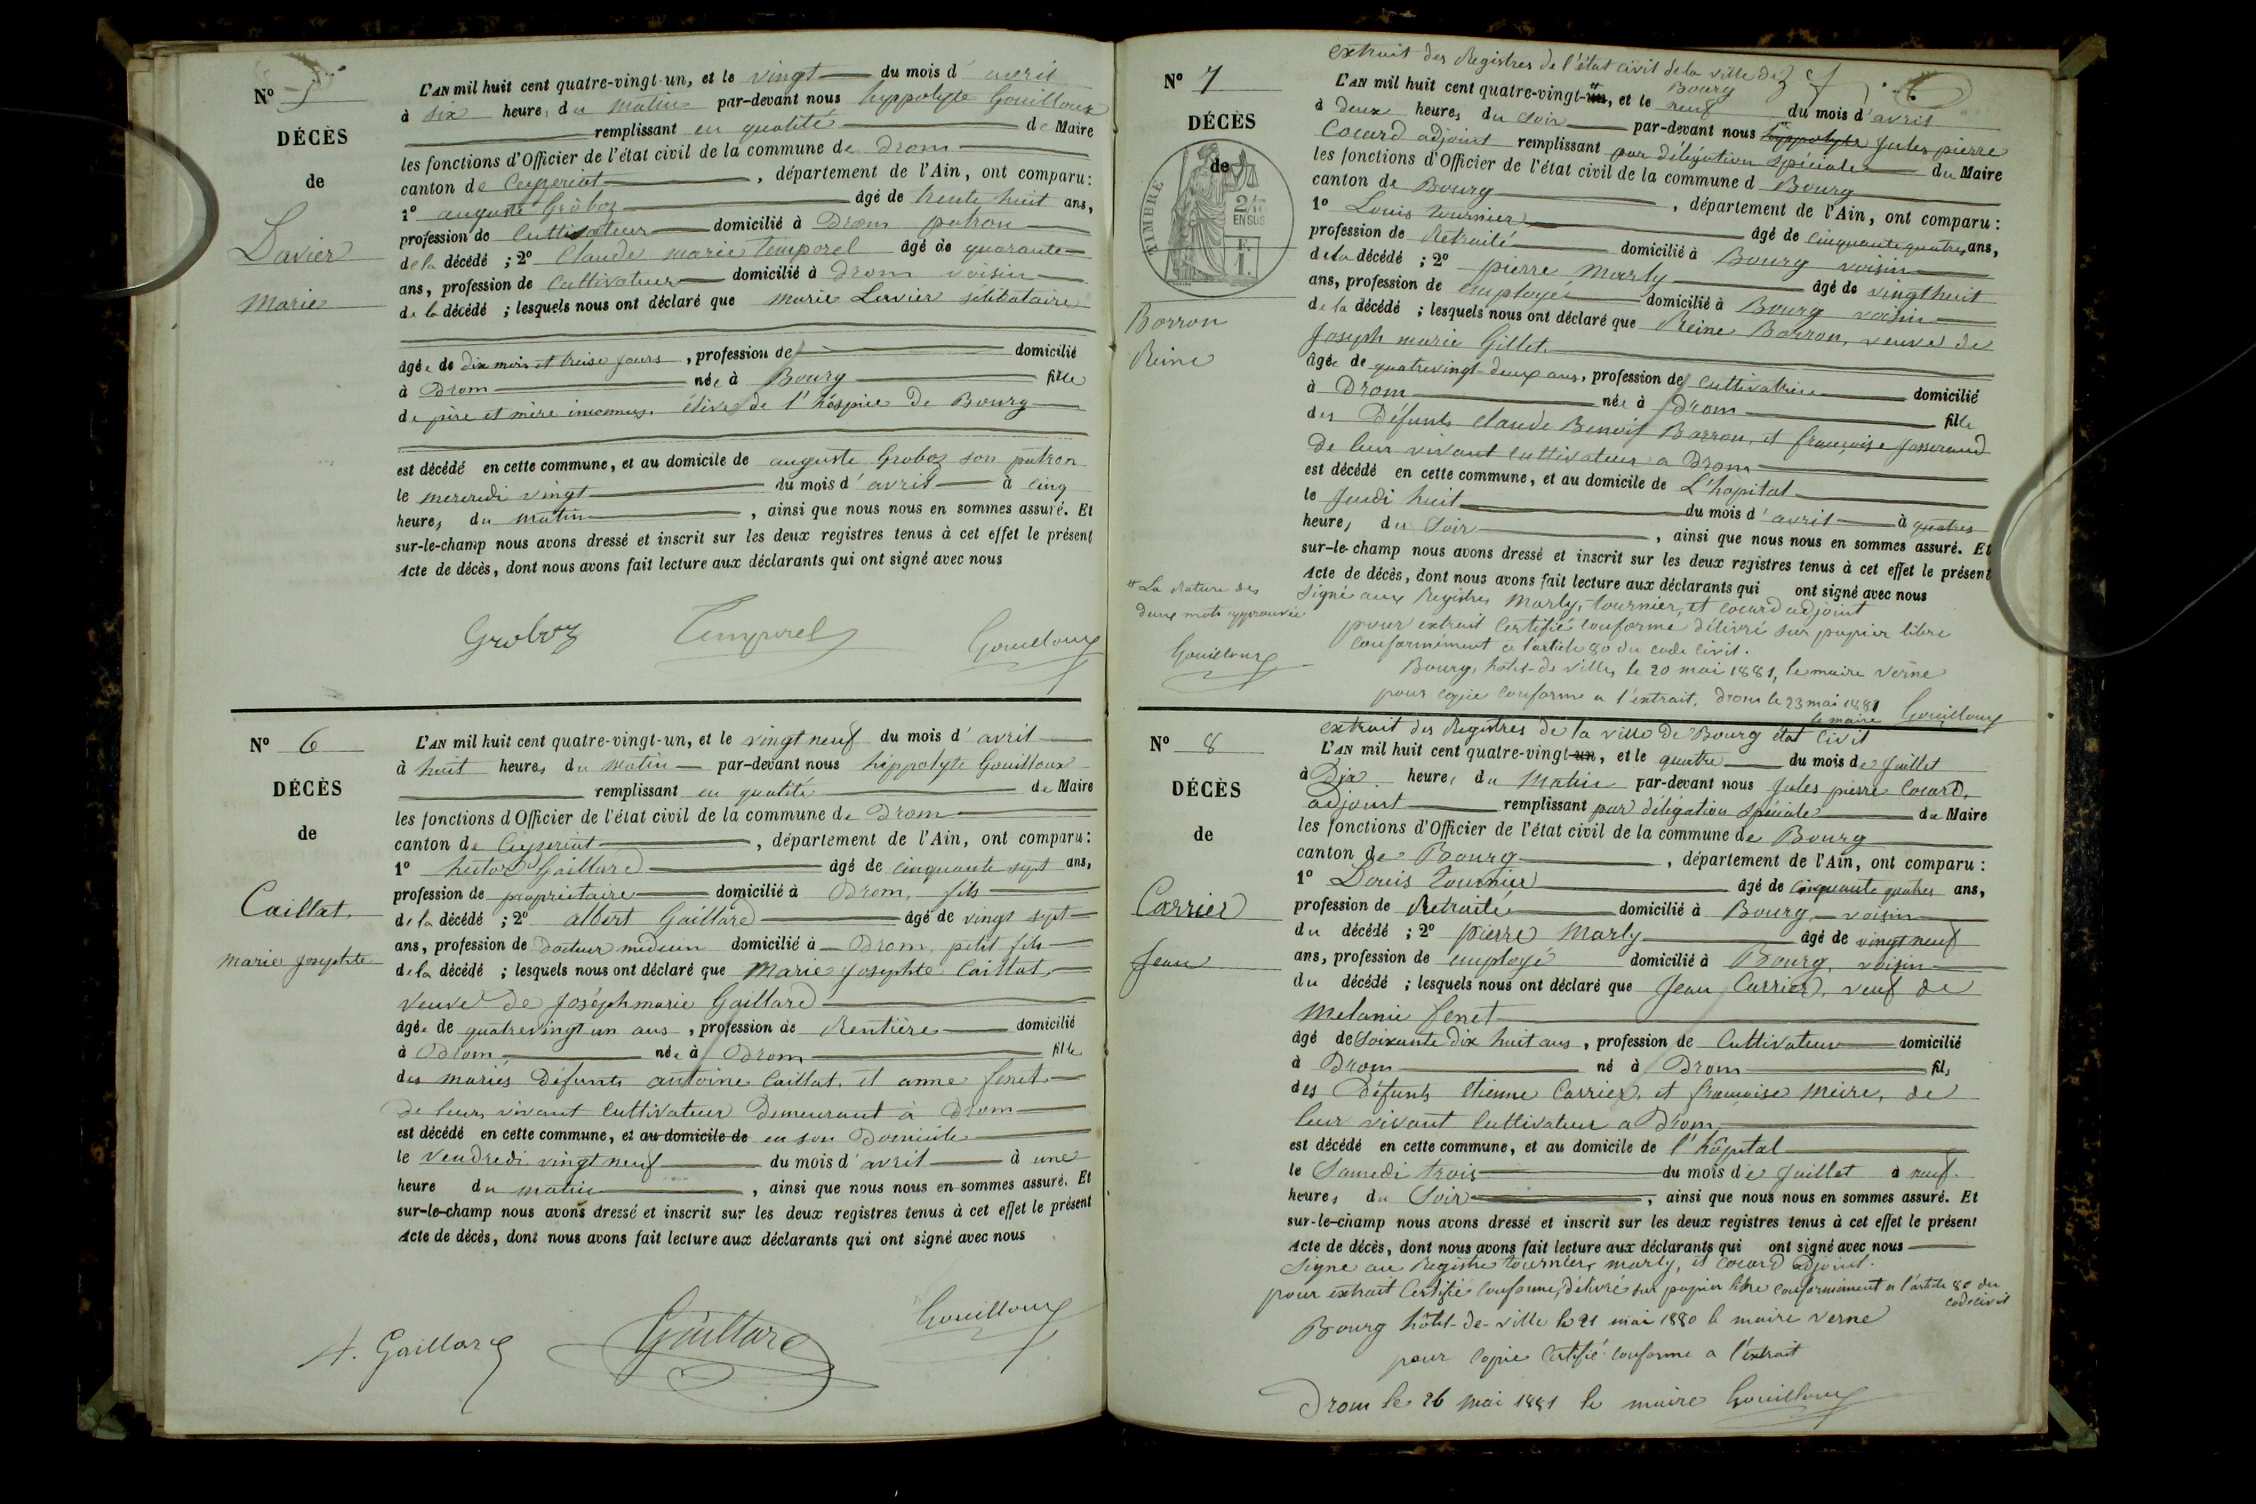 N° 5
DÉCÈS
de
Lavier
Marie
L'AN mil huit cent quatre-vingt-un, et le vingt du mois d' avril
à six heures du matin par-devant nous hyppolyte Gouilloux
remplissant en qualité de Maire
les fonctions d'Officier de l'état civil de la commune de Drom
canton de Ceyzeriat, département de l'Ain, ont comparu:
1° auguste Groboz âgé de trente huit ans,
profession de Cultivateur domicilié à Drom patron
de la décédé ; 2° Claude marie Temporel âgé de quarante
ans, profession de Cultivateur domicilié à Drom voisin
de la décédé ; lesquels nous ont déclaré que marie Lavier célibataire
âgée de dix mois et treise jours, profession de domicilié
à Drom née à Bourg fille
de père et mère inconnus. élève de l'hospice De Bourg
est décédé en cette commune, et au domicile de auguste Groboz son patron
le mercredi vingt du mois d' avril à cinq
heures du matin, ainsi que nous nous en sommes assuré. Et
sur-le-champ nous avons dressé et inscrit sur les deux registres tenus à cet effet le présent
Acte de décès, dont nous avons fait lecture aux déclarants qui ont signé avec nous
Groboz Temporel Gouilloux
N° 6
DÉCÈS
de
Caillat.
marie josephte
L'AN mil huit cent quatre-vingt-un, et le vingt neuf du mois d' avril
à huit heures du matin par-devant nous hippolyte Gouilloux
remplissant en qualité de Maire
les fonctions d'Officier de l'état civil de la commune de Drom
canton de Ceyzeriat, département de l'Ain, ont comparu:
1° hector Gaillard âgé de cinquante sept ans,
profession de propriétaire domicilié à Drom, fils
de la décédé ; 2° albert Gaillard âgé de vingt sept
ans, profession de docteur médecin domicilié à Drom, petit fils
de la décédé ; lesquels nous ont déclaré que Marie josephte Caillat
veuve de Joséph marie Gaillard
âgée de quatrevingt un ans, profession de Rentière domicilié
à Drom née à Drom fille
des mariés Défunts antoine Caillat, et anne fenet
De leurs vivant Cultivateur Demeurant à Drom
est décédé en cette commune, et au domicile de en son Domicile
le Vendredi vingt neuf du mois d' avril à une
heure du matin, ainsi que nous nous en sommes assuré. Et
sur-le-champ nous avons dressé et inscrit sur les deux registres tenus à cet effet le présent
Acte de décès, dont nous avons fait lecture aux déclarants qui ont signé avec nous
H. Gaillard Gaillard Gouilloux
extrait des Registres de l'état civil de la ville de Bourg
N° 7
DÉCÈS
de
TIMBRE
EN SUS
Borron
Reine
L'AN mil huit cent quatre-vingt-un, et le neuf du mois d'avril
à deux heures du soir par-devant nous hyppolyte jules pierre
Cocard adjoint remplissant par délégation spéciale du Maire
les fonctions d'Officier de l'état civil de la commune d Bourg
canton de Bourg, département de l'Ain, ont comparu:
1° Louis tournier âgé de cinquante quatre ans,
profession de Retraité domicilié à Bourg voisin
de la décédé ; 2° pierre Marly âgé de vingt huit
ans, profession de employé domicilié à Bourg voisin
de la décédé ; lesquels nous ont déclaré que Reine Borron, veuve de
Joseph marie Gillet
âgée de quatrevingt deux ans, profession de Cultivatrice domicilié
à Drom née à Drom fille
des Défunts Claude Benoit Borron, et françoise Josserand
De leur vivant Cultivateur a Drom
est décédé en cette commune, et au domicile de L'hopital
le Jeudi huit du mois d'avril à quatres
heures du Soir, ainsi que nous nous en sommes assuré. Et
sur-le-champ nous avons dressé et inscrit sur les deux registres tenus à cet effet le présent
Acte de décès, dont nous avons fait lecture aux déclarants qui ont signé avec nous
Signé aux Registres Marly, tournier, et cocard adjoint
pour extrait Certifié conforme délivré sur papier libre
conformément a l'article 80 du code civil.
Bourg, hôtel-de ville, le 20 mai 1881, le maire Verne
pour copie conforme a l'extrait, Drom le 23 mai 1881
le maire Gouilloux
La Rature des
deux mots approuvée
Gouilloux
extrait des Registres de la ville De Bourg état Civil
N° 8
DÉCÈS
de
Carrier
Jean
L'AN mil huit cent quatre-vingt-un, et le quatre du mois de juillet
à Dix heures du Matin par-devant nous Jules pierre Cocard,
adjoint remplissant par délégation spéciale du Maire
les fonctions d'Officier de l'état civil de la commune de Bourg
canton de Bourg, département de l'Ain, ont comparu:
1° Louis tournier âgé de cinquante quatres ans,
profession de Retraité domicilié à Bourg voisin
du décédé ; 2° pierre Marly âgé de vingt neuf
ans, profession de employé domicilié à Bourg, voisin
du décédé ; lesquels nous ont déclaré que Jean Carrier, veuf de
Melanie fenet
âgé de Soixante Dix huit ans, profession de Cultivateur domicilié
à Drom né à Drom fils
des Défunts Etienne Carrier, et françoise Meire, de
leur vivant Cultivateur a Drom
est décédé en cette commune, et au domicile de l'hôpital
le Samedi trois du mois de Juillet à neuf
heures du Soir, ainsi que nous nous en sommes assuré. Et
sur-le-champ nous avons dressé et inscrit sur les deux registres tenus à cet effet le présent
Acte de décès, dont nous avons fait lecture aux déclarants qui ont signé avec nous
Signé au Registre tournier, marly, et cocard adjoint.
pour extrait Certifié conforme, délivré sur papier libre conformément a l'article 80 du
code civil
Bourg hôtel-de-ville le 21 mai 1880 le maire Verne
pour copie Certifié conforme a l'extrait
Drom le 26 Mai 1881 le maire Gouilloux